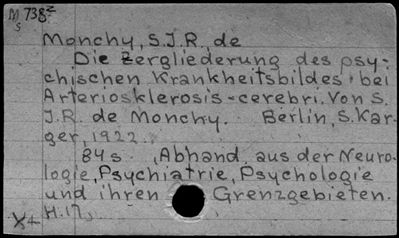 M 738z
s
Monchy, S.J.R., de
Die Zergliederung des psy-
chischen Krankheitsbildes bei
Arteriosklerosis-cerebri. Von S.
J.R. de Monchy. Berlin, S. Kar-
ger, 1922.
84 s. (Abhand. aus der Neuro-
logie, Psychiatrie, Psychologie
und ihren Grenzgebieten.
H. 17)